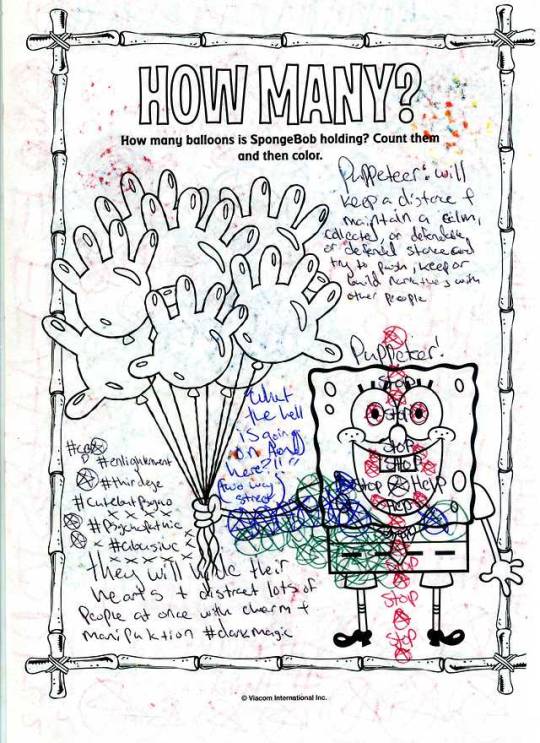 HOW MANY?
How many balloons is SpongeBob holding? Count them
and then color.
Puppeteer: will
keep a distance &
maintain a calm,
collected, or defendable
or defended stance and
try to push, keep or
build narratives with
other people
Puppeteer!
Stop
Stop
Stop
Stop
Stop Help
Help
What
the hell
is going
on And
here?!!
two way
street
#enlightenment
#third eye
#Cutebut Psycho
#Psychopathic
They will hide their
hearts + distract lots of
People at once with charm +
manipulation #darkmagic
Stop
Stop
Stop
© Viacom International Inc.